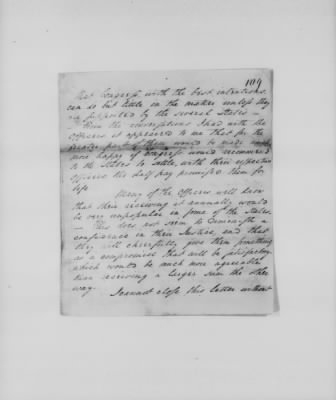 104
that Congress with the best intentions
can do but little in the matter unless they
are supported by the several States —
From the conversations I had with the
Officers it appeared to me that for the
greater part of them would be made
more happy if Congress would recommend
to the States to settle with their respective
Officers the half pay promised them for
life
Many of the Officers well know
that their receiving it annually would
be very unpopular in some of the States
— This does not seem to
confidence in their Justice, and that
they will chearfully give them something
as a compromise that will be satisfactory
which would be much more agreeable
than receiving a larger sum the other
way.
I cannot close this letter without